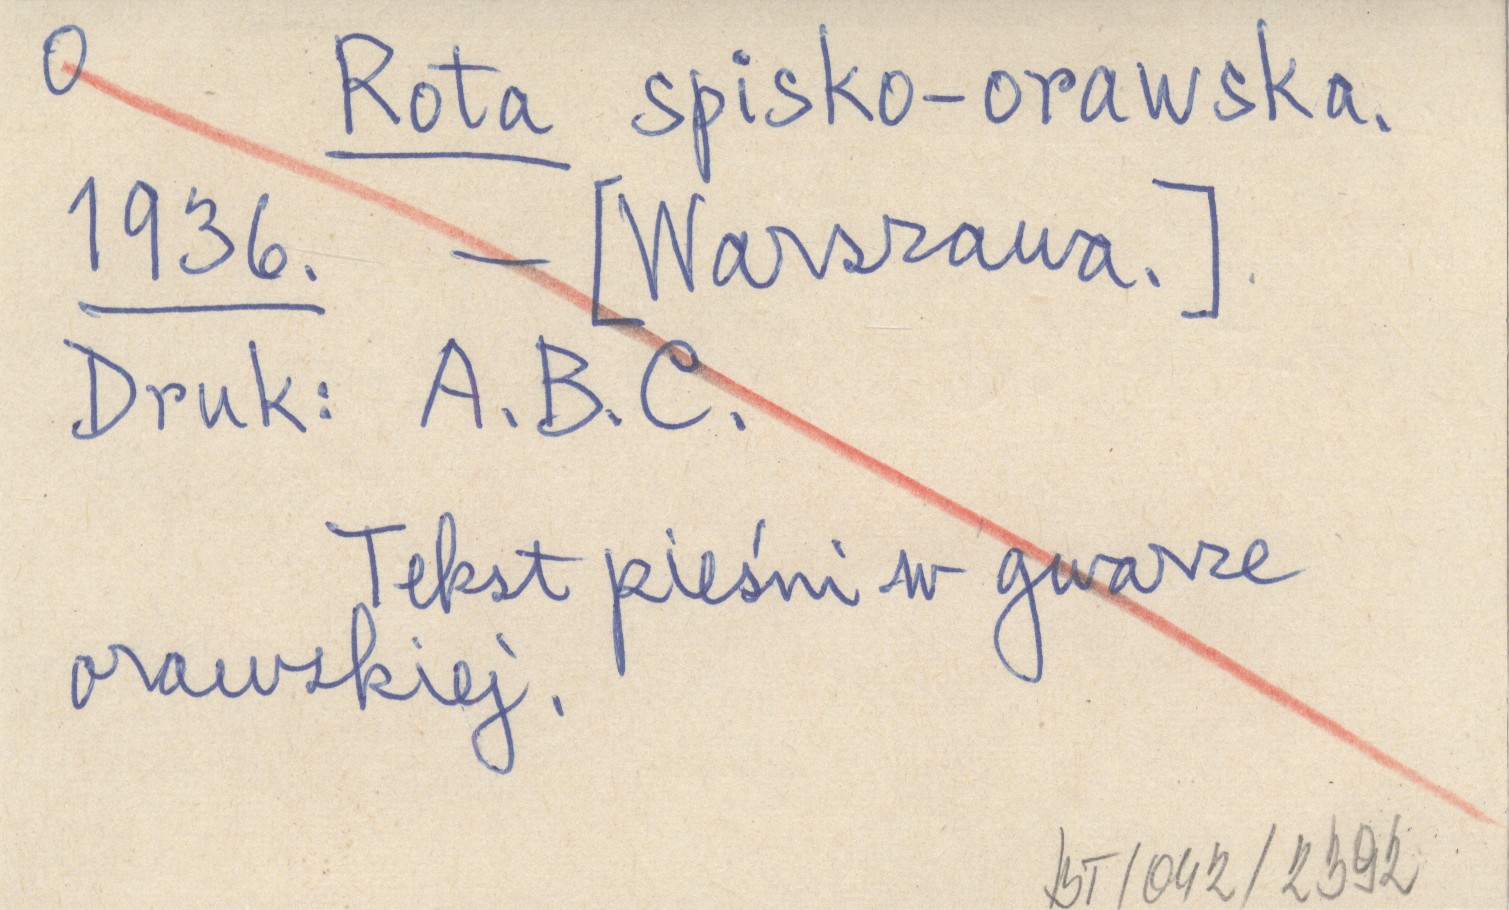 O Rota spisko-orawska.
1936. — [Warszawa.].
Druk: A.B.C.
Tekst pieśni w gwarze
orawskiej.
BT/042/2392